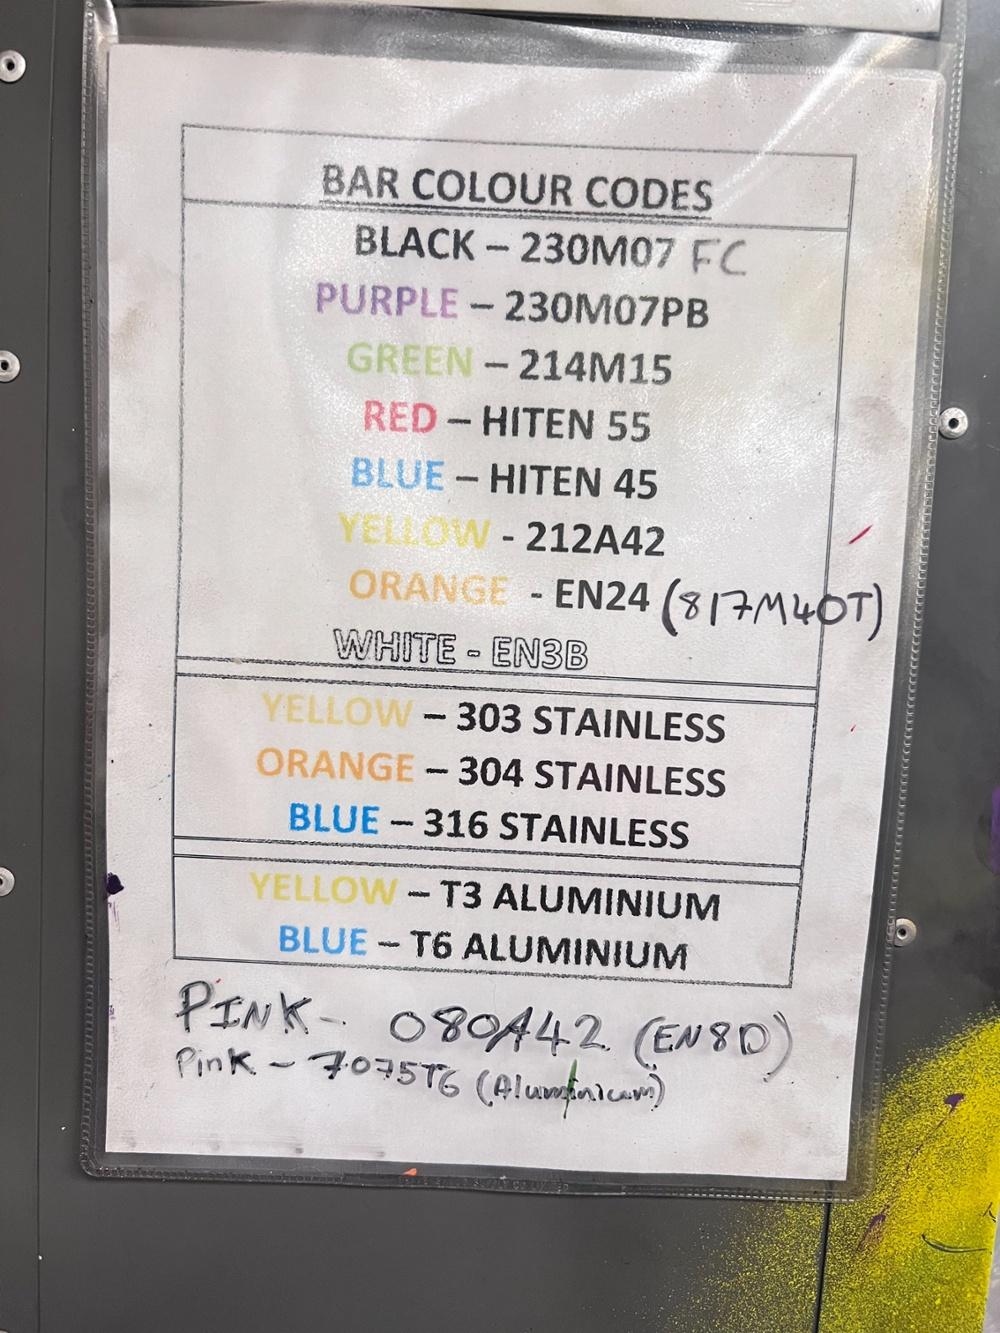 BAR COLOUR CODES
BLACK – 230M07 FC
PURPLE – 230M07PB
GREEN – 214M15
RED – HITEN 55
BLUE – HITEN 45
YELLOW - 212A42
ORANGE - EN24 (817M40T)
WHITE - EN3B
YELLOW – 303 STAINLESS
ORANGE – 304 STAINLESS
BLUE – 316 STAINLESS
YELLOW – T3 ALUMINIUM
BLUE – T6 ALUMINIUM
PINK - 080A42 (EN8D)
Pink - 7075T6 (Aluminium)